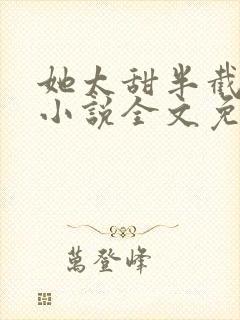 她太甜半截
小说全文免
萬登峰